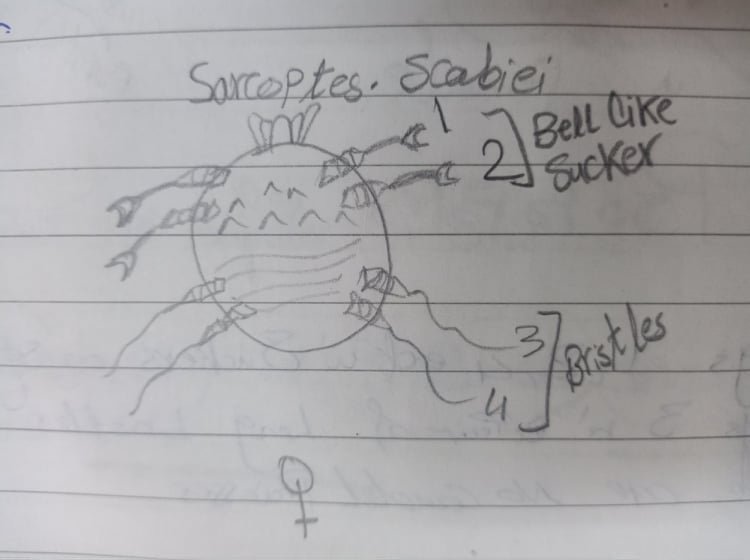 Sarcoptes. Scabiei
1
2
Bell like
sucker
3
4
Bristles
♀